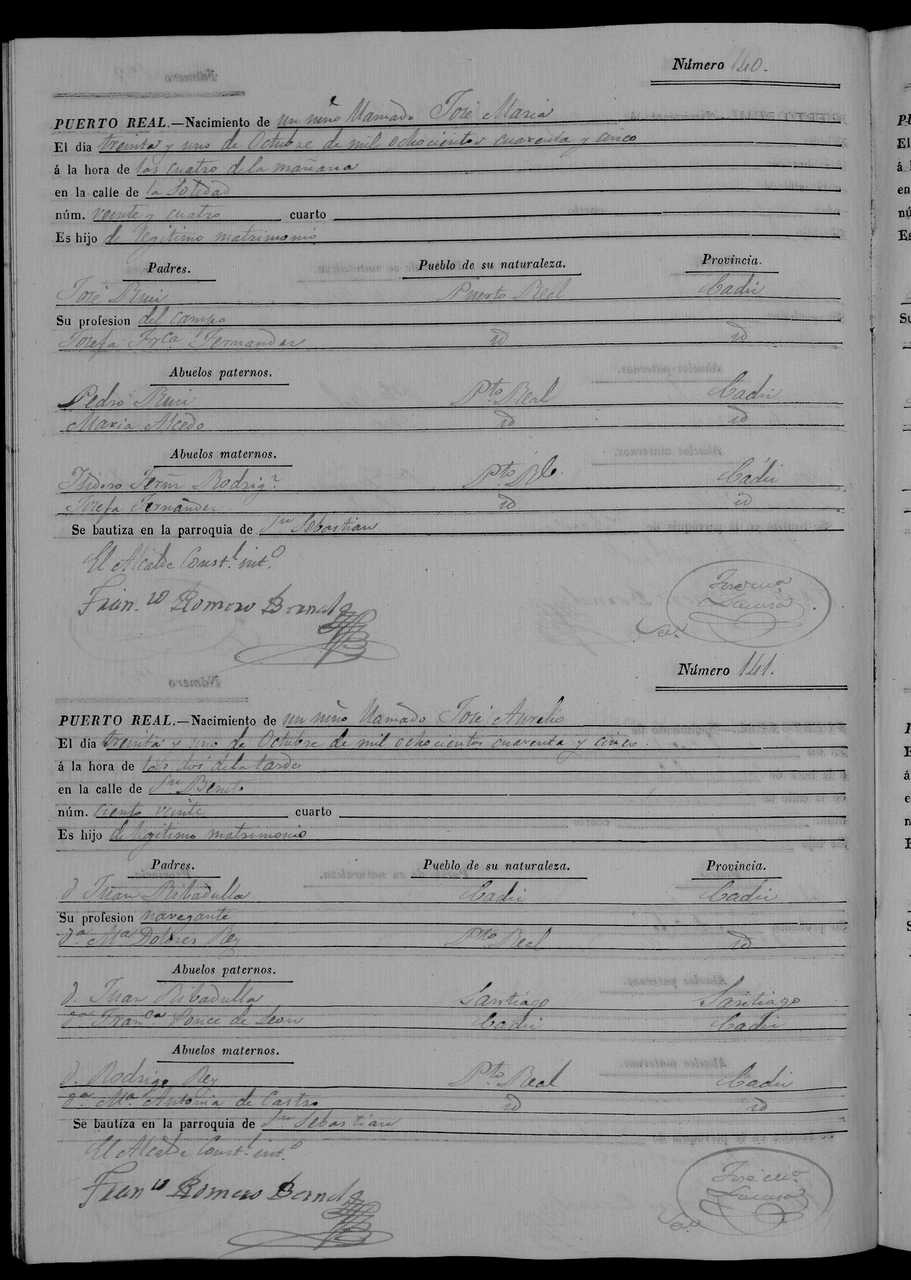 Número 140.
PUERTO REAL.—Nacimiento de un niño llamado José Maria
El dia treinta y uno de Octubre de mil ochocientos cuarenta y cinco
á la hora de las cuatro de la mañana
en la calle de la Soledad
núm. veinte y cuatro cuarto
Es hijo de legitimo matrimonio
Padres. Pueblo de su naturaleza. Provincia.
José Ruiz Puerto Real Cadiz
Su profesion del campo
Josefa Frca Fernandez id id
Abuelos paternos.
Pedro Ruiz Pto Real Cadiz
Maria Alcedo id id
Abuelos maternos.
Isidoro Rodrigz Pto Rl Cádiz
Josefa Fernández id id
Se bautiza en la parroquia de Sn Sebastian
El Alcalde Constl. into.
Fran.co Romero Bernal
Número 141.
PUERTO REAL.—Nacimiento de un niño llamado José Aurelio
El dia treinta y uno de Octubre de mil ochocientos cuarenta y cinco.
á la hora de las dos de la tarde
en la calle de Sn Benito
núm. ciento veinte cuarto
Es hijo de legitimo matrimonio
Padres. Pueblo de su naturaleza. Provincia.
d. Juan Ribadulla Cadiz Cadiz
Su profesion navegante
da Ma Dolores Rey Pto Real id
Abuelos paternos.
d. Juan Ribadulla Santiago Santiago
da Franca Ponce de Leon Cadiz Cadiz
Abuelos maternos.
d. Rodrigo Rey Pto Real Cadiz
da Ma. Antonia de Castro id id
Se bautiza en la parroquia de Sn Sebastian
El Alcalde Constl. into.
Fran co Romero Bernal